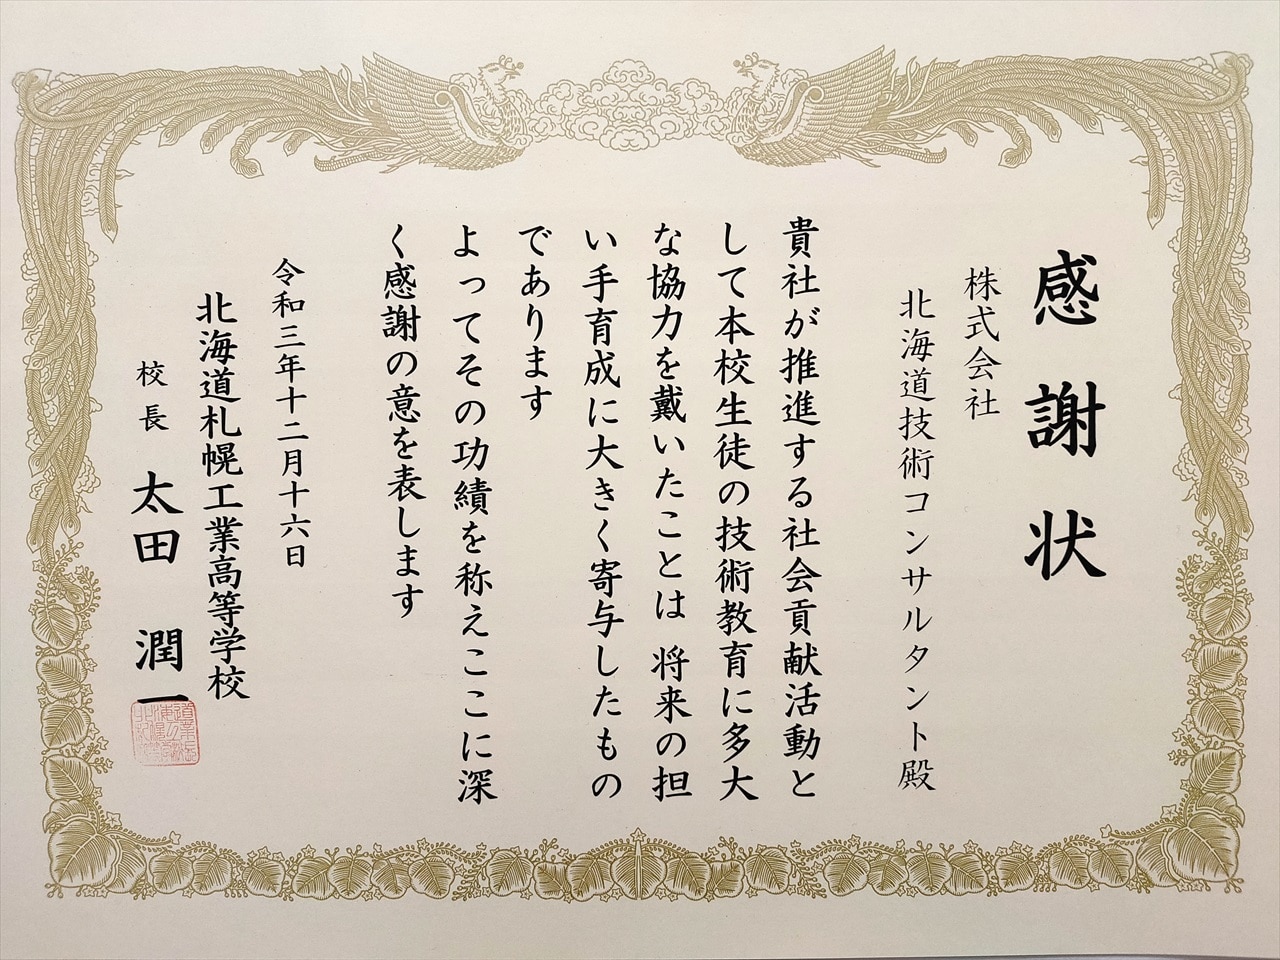 感謝状
株式会社
北海道技術コンサルタント殿
貴社が推進する社会貢献活動と
して本校生徒の技術教育に多大
な協力を戴いたことは 将来の担
い手育成に大きく寄与したもの
であります
よってその功績を称えここに深
く感謝の意を表します
令和三年十二月十六日
北海道札幌工業高等学校
校長 太田 潤一